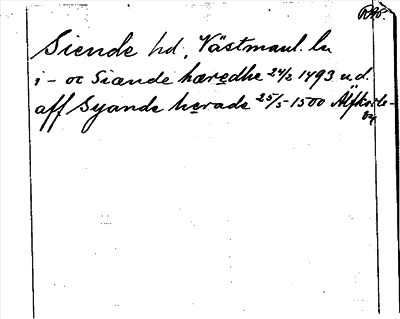 RAp
Siende hd, Västmanl. ln
i - oc Siænde hæredhe 24/2 1493 u.d.
aff Syande herade 25/5 1500 Älfkarle-
by